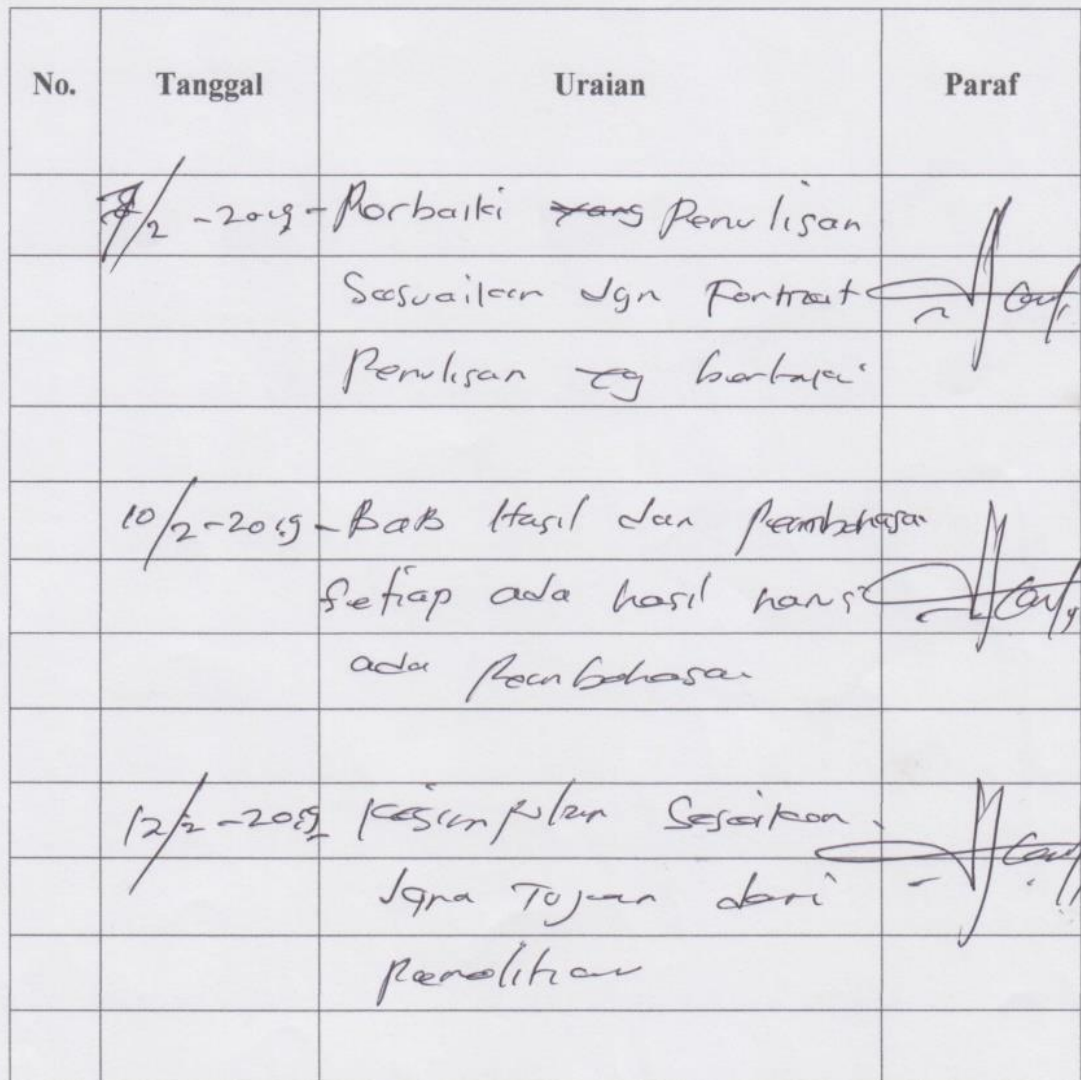 No. Tanggal Uraian Paraf
7/2 - 2019 - Perbaiki yang Penulisan
Sesuaikan dgn Format
Penulisan yg berlaku
10/2-2019 - BAB Hasil dan Pembahasa
Setiap ada hasil harus
ada Pembahasa
12/2-2019 Kesimpulan Sesaikan
dgna Tujuan dari
Penelitian